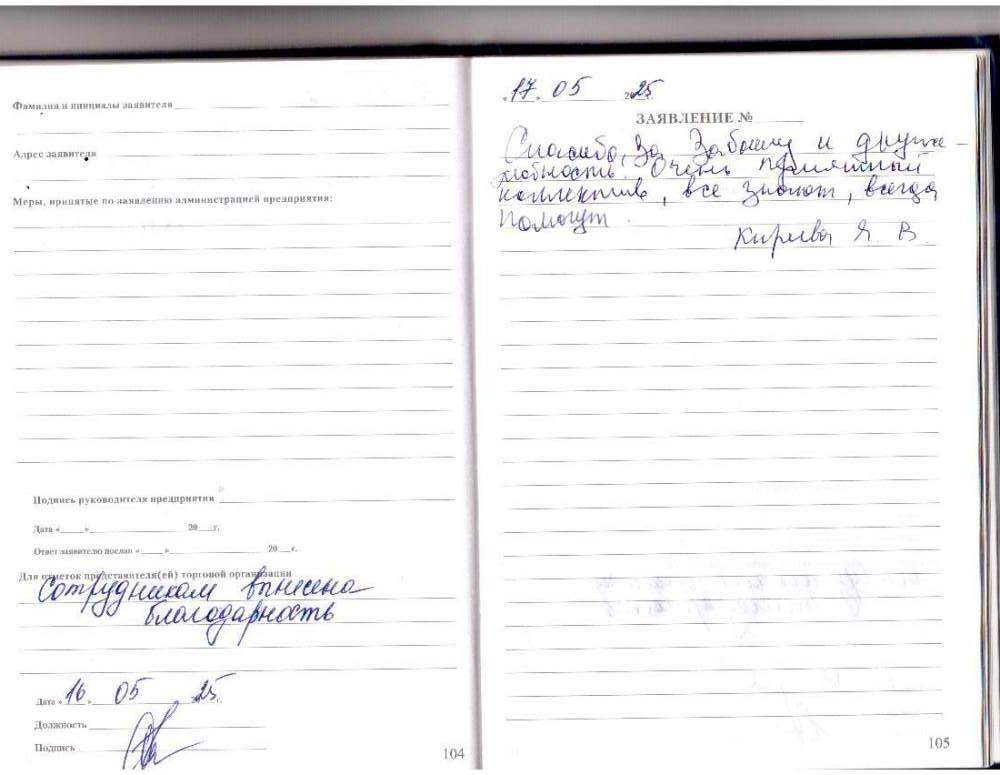 Фамилия и инициалы заявителя
Адрес заявителя
Меры, принятые по заявлению администрацией предприятия:
Подпись руководителя предприятия
Дата «____»____________ 20___г.
Ответ заявителю послан «____»____________ 20___г.
Для отметок представителя(ей) торговой организации
Сотрудникам вынесена
благодарность
Дата «16» 05 25г.
Должность
Подпись
104
17. 05 2025
ЗАЯВЛЕНИЕ №
Спасибо, за Заботу и друже-
любность. Очень приятный
коллектив, все знают, всегда
помогут.
Я В.
105